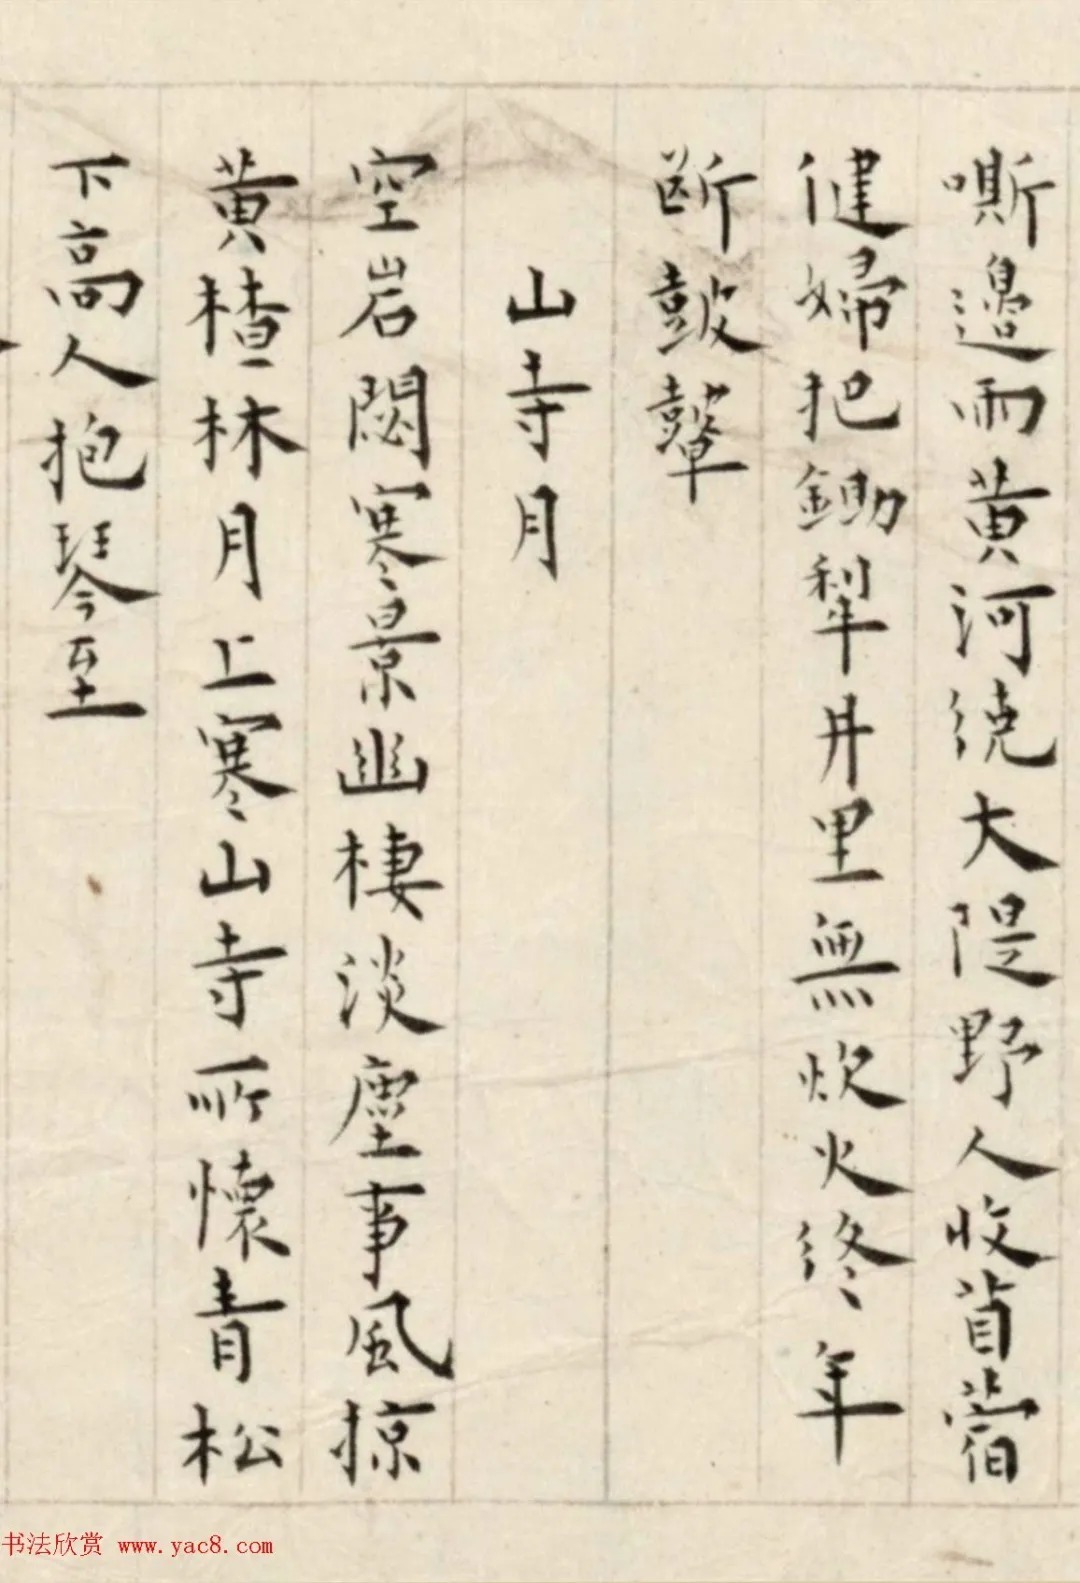 嘶邊雨黃河繞大隄野人收苜蓿
健婦把鋤犁井里無炊火終年
斷鼓鼙
山寺月
空岩閟寒景幽棲淡塵事風掠
黃楂林月上寒山寺所懷青松
下高人抱琴至
书法欣赏 www.yac8.com